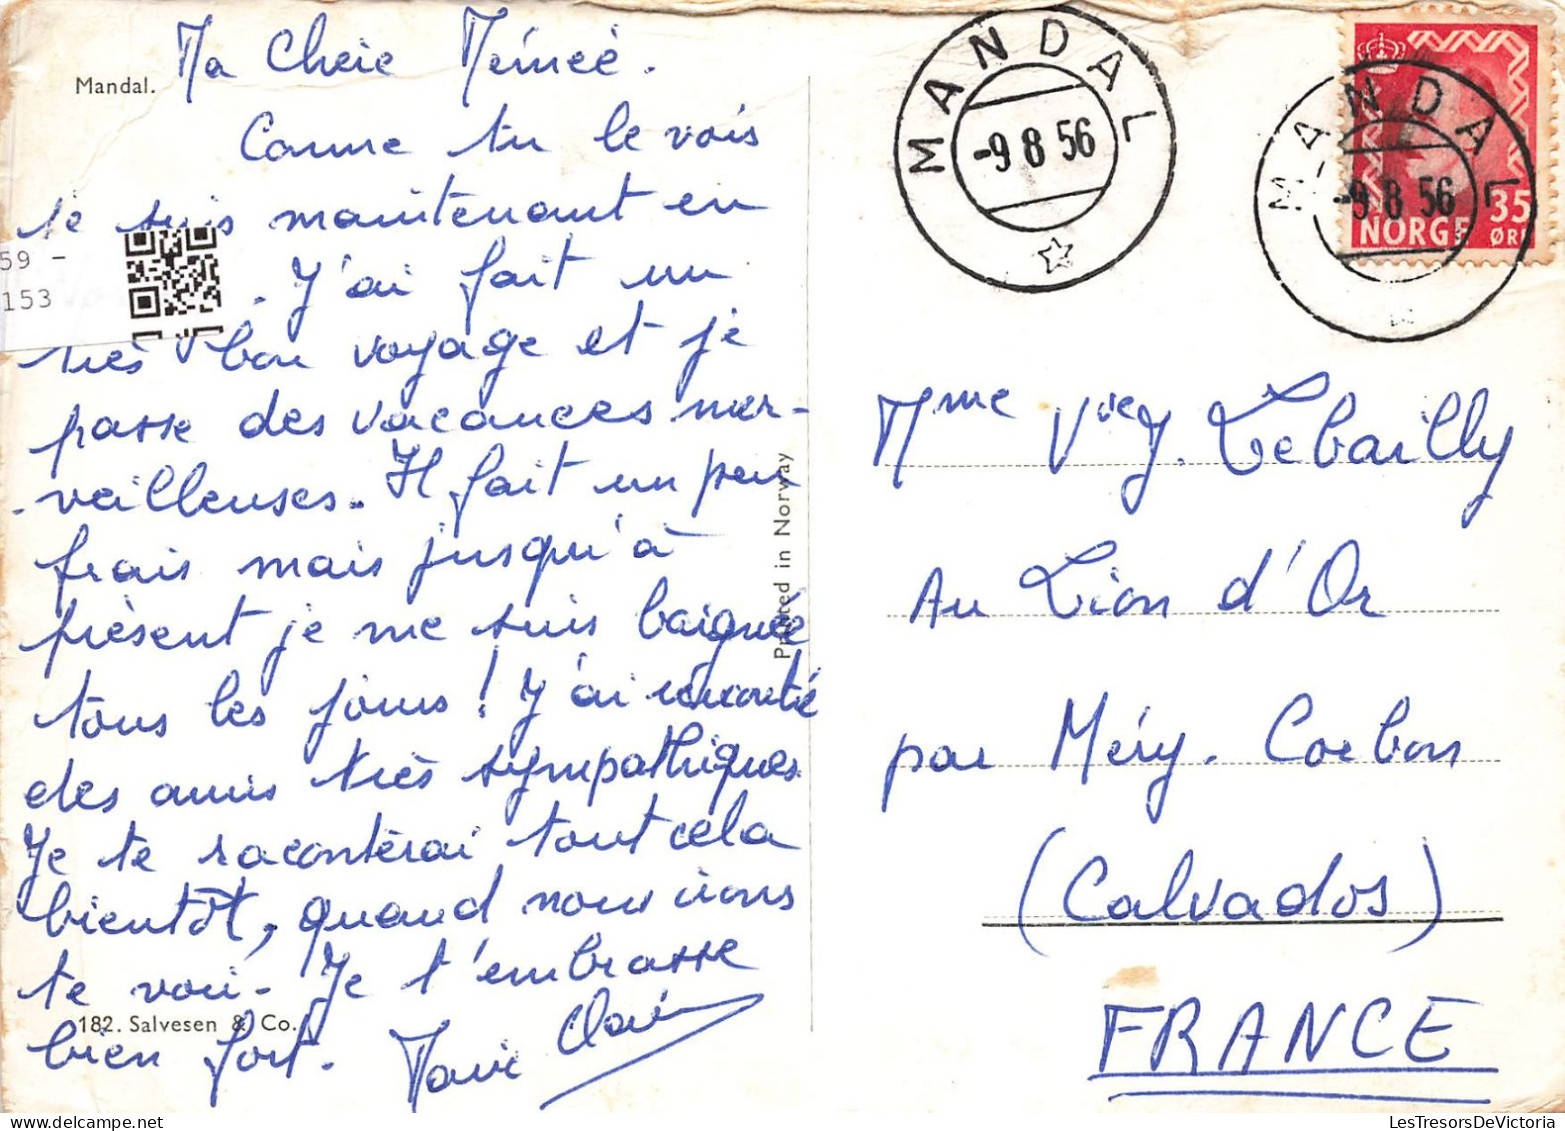 Mandal.
Ma Chère Mémée.
Comme tu le vois
je suis maintenant en
59 -
153
. J'ai fait un
très bon voyage et je
passe des vacances mer-
-veilleuses. Il fait un peu
frais mais jusqu'à
présent je me suis baignée
tous les jours ! J'ai rencontré
des amis très sympathiques.
Je te raconterai tout cela
bientôt, quand nous irons
te voir. Je t'embrasse
bien fort. Marie Claire
182. Salvesen & Co.
Printed in Norway
MANDAL
-9 8 56
MANDAL
-9 8 56
NORGE 35
ØRE
Mme Vve J. Lebailly
Au Lion d'Or
par Méry-Corbon
(Calvados)
FRANCE
LesTresorsDeVictoria.com